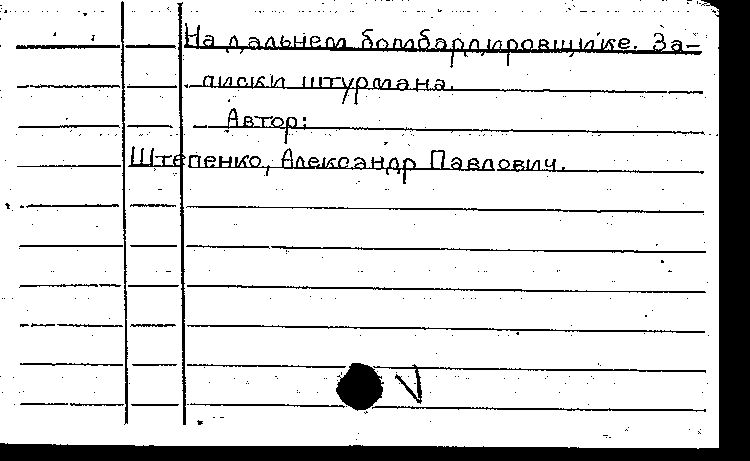 На дальнем бомбардировщике. За-
писки штурмана.
Автор:
Штепенко, Александр Павлович.
V